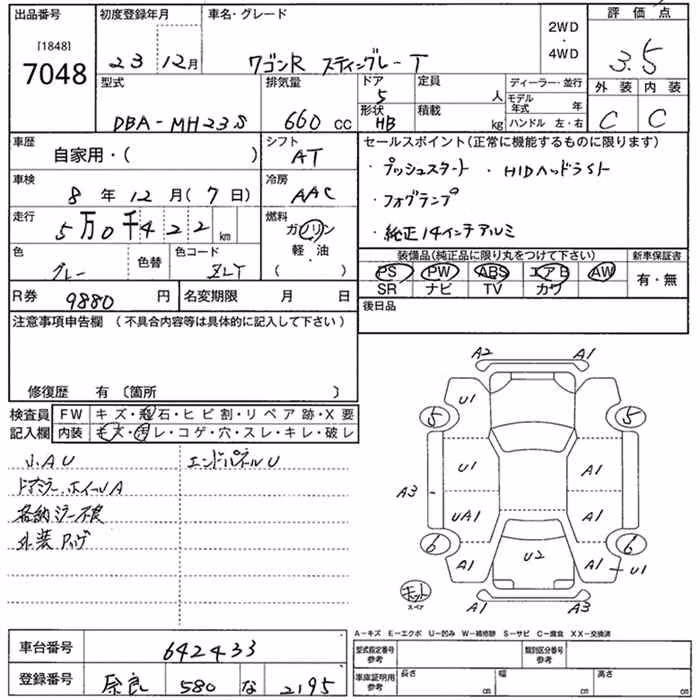 出品番号 初度登録年月 車名・グレード 2WD・4WD 評価点
[1848]
7048 23 12月 ワゴンR スティングレー T 3.5
型式 排気量 ドア 定員 ディーラー・並行 外装 内装
5 人 モデル年式 年
DBA-MH23S 660 cc 形状 HB 積載 kg ハンドル 左・右 C C
車歴 シフト セールスポイント(正常に機能するものに限ります)
自家用・( ) AT
・プッシュスタート ・HIDヘッドライト
車検 冷房
8 年 12 月(7 日) AAC ・フォグランプ
走行 燃料
5万0千422 km ガソリン ・純正14インチアルミ
軽・油
色 色替 色コード ( ) 装備品(純正品に限り丸をつけて下さい) 新車保証書
グレー ZLY PS PW ABS エアB AW 有・無
SR ナビ TV カワ
R券 9880 円 名変期限 月 日 後日品
注意事項申告欄(不具合内容等は具体的に記入して下さい)
修復歴 有〔箇所 〕
検査員 FW キズ・飛石・ヒビ割・リペア跡・X要
記入欄 内装 コゲ・穴・スレ・キレ・破レ
小AU エンドパネルU
ドアミラー、ホイールA
格納ミラー不良
外装
A2 A1
U1
5 5
U1 A1
A3 A3
UA1 A1
6 6
A1 U2 A1 U1
スペア A1
A-キズ E-エクボ U-凹み W-補修跡 S-サビ C-腐食 XX-交換済
車台番号 642433 型式指定番号 参考 類別区分番号 参考
登録番号 奈良 580 な 2195 車庫証明用 参考 長さ cm 幅 cm 高さ cm